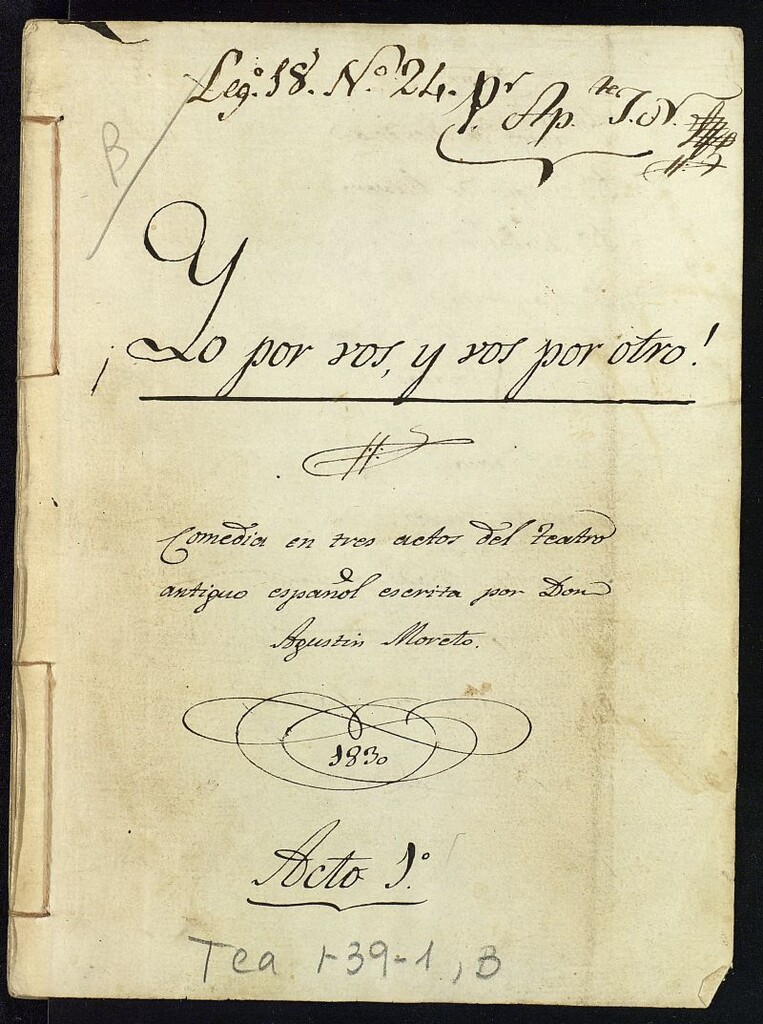 Leg.º 18. N.º 24. P.r Ap.te J. N.
B
¡Yo por vos, y vos por otro!
Comedia en tres actos del teatro
antiguo español escrita por Don
Agustin Moreto.
1830
Acto 1.º
Tea 1-39-1, B